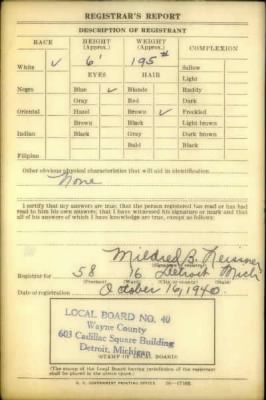 REGISTRAR'S REPORT
DESCRIPTION OF REGISTRANT
RACE HEIGHT (Approx.) WEIGHT (Approx.) COMPLEXION
White ✓ 6' 195 Sallow
EYES HAIR Light
Negro Blue ✓ Blonde Ruddy
Gray Red Dark
Oriental Hazel Brown ✓ Freckled
Brown Black Light brown
Indian Black Gray Dark brown
Bald Black
Filipino
Other obvious physical characteristics that will aid in identification
None
I certify that my answers are true; that the person registered has read or has had
read to him his own answers; that I have witnessed his signature or mark and that
all of his answers of which I have knowledge are true, except as follows:
Mildred B.
Registrar for 58 16 Detroit Mich
(Precinct) (Ward) (City or county) (State)
Date of registration October 16, 1940
LOCAL BOARD NO. 40
Wayne County
603 Cadillac Square Building
Detroit, Michigan
(STAMP OF LOCAL BOARD)
(The stamp of the Local Board having jurisdiction of the registrant
shall be placed in the above space.)
U. S. GOVERNMENT PRINTING OFFICE